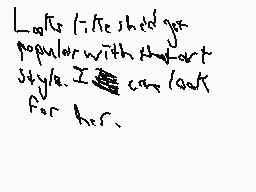 Looks like she'd get
popular with that art
style. I can look
for her.